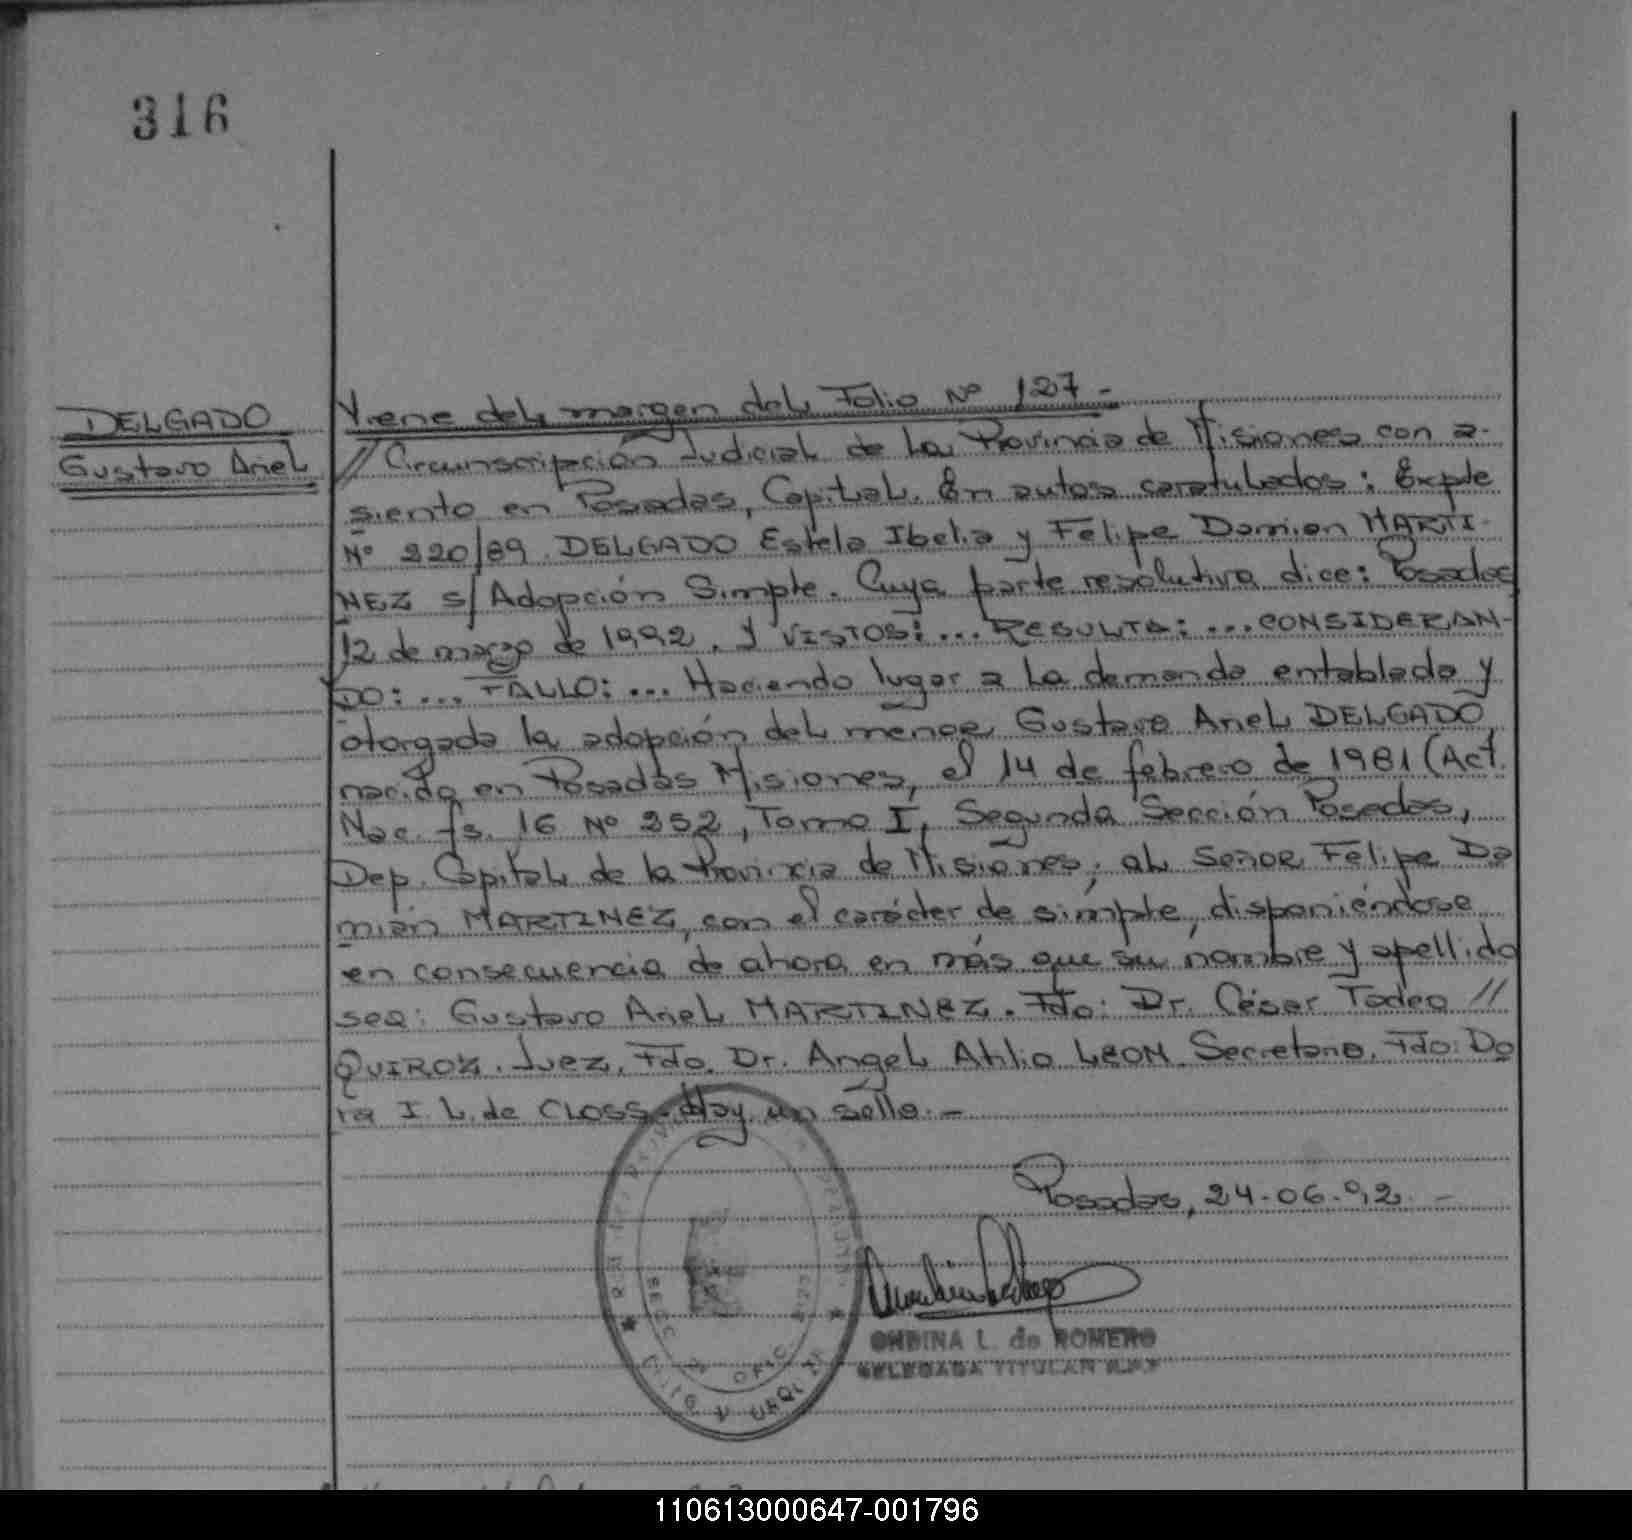 316
DELGADO
Gustavo Ariel
Viene del margen del Folio Nº 127 -
// Circunscripción Judicial de la Provincia de Misiones con a-
siento en Posadas, Capital. En autos caratulados: Expte
Nº 220/89. DELGADO Estela Ibelia y Felipe Damian MARTI-
NEZ s/ Adopción Simple. Cuya parte resolutiva dice: Posadas
12 de marzo de 1992. Y VISTOS: ... RESULTA: ... CONSIDERAN-
DO: ... FALLO: ... Haciendo lugar a la demanda entablada y
otorgada la adopción del menor Gustavo Ariel DELGADO
nacido en Posadas Misiones, el 14 de febrero de 1981 (Act.
Nac. fs. 16 Nº 252, Tomo I, Segunda Sección Posadas,
Dep. Capital de la Provincia de Misiones; al Señor Felipe Da
mián MARTINEZ, con el carácter de simple, disponiéndose
en consecuencia de ahora en más que su nombre y apellido
sea: Gustavo Ariel MARTINEZ. Fdo: Dr. César Tadeo //
QUIROZ. Juez. Fdo. Dr. Angel Atilio LEON. Secretario. Fdo: Do
ra I. L. de CLOSS. Hay un sello. -
Posadas, 24-06-92. -
ONDINA L. de ROMERO
DELEGADA TITULAR R.P.P
110613000647-001796